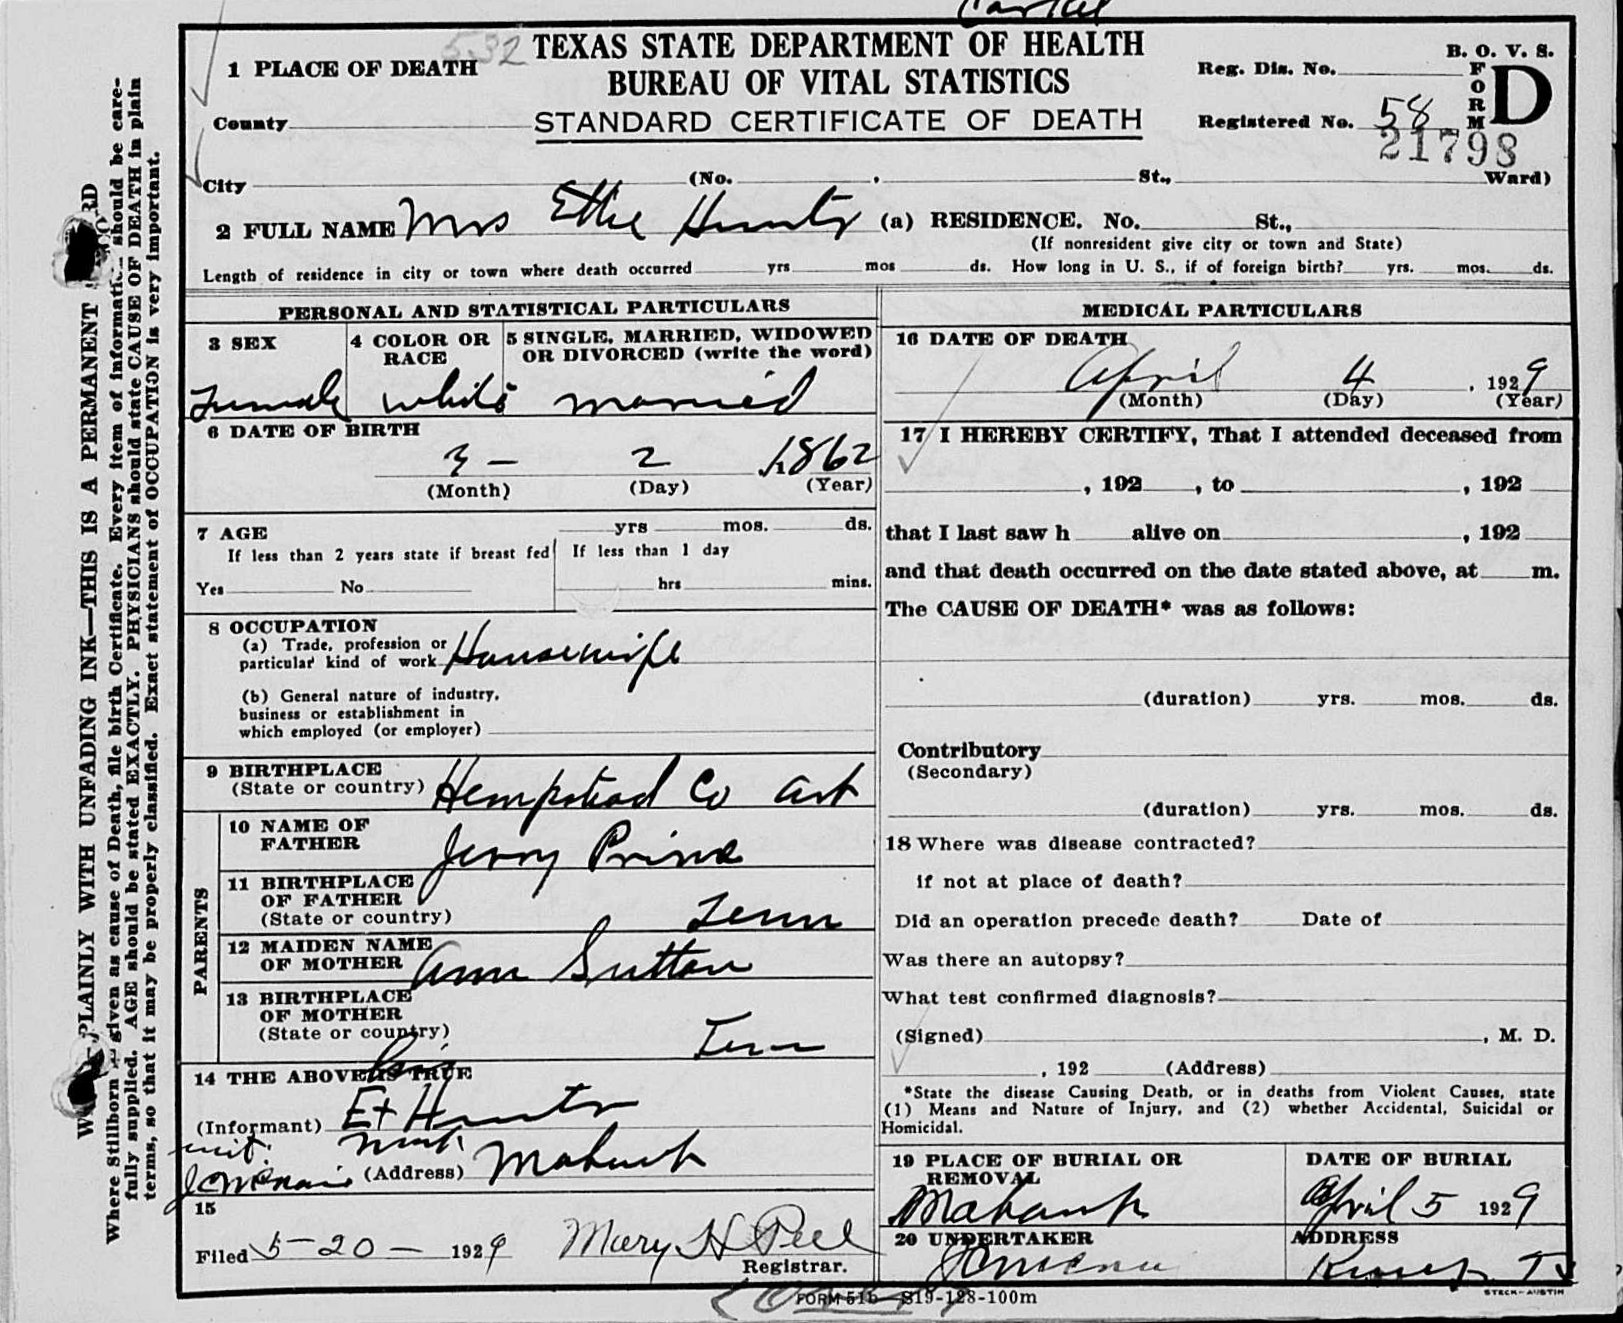 532
TEXAS STATE DEPARTMENT OF HEALTH
BUREAU OF VITAL STATISTICS
STANDARD CERTIFICATE OF DEATH
B. O. V. S.
FORM D
Reg. Dis. No.
Registered No. 58
21798
1 PLACE OF DEATH
County
City (No. , St., Ward)
2 FULL NAME Mrs Ettie Hunter (a) RESIDENCE. No. St.,
(If nonresident give city or town and State)
Length of residence in city or town where death occurred yrs mos ds. How long in U. S., if of foreign birth? yrs. mos. ds.
PERSONAL AND STATISTICAL PARTICULARS
3 SEX
Female
4 COLOR OR RACE
white
5 SINGLE, MARRIED, WIDOWED
OR DIVORCED (write the word)
married
6 DATE OF BIRTH
3 — 2 1862
(Month) (Day) (Year)
7 AGE yrs mos. ds.
If less than 2 years state if breast fed
Yes No
If less than 1 day
hrs mins.
8 OCCUPATION
(a) Trade, profession or
particular kind of work Housewife
(b) General nature of industry,
business or establishment in
which employed (or employer)
9 BIRTHPLACE
(State or country) Hempstead Co Ark
PARENTS
10 NAME OF
FATHER Jerry Prince
11 BIRTHPLACE
OF FATHER
(State or country) Tenn
12 MAIDEN NAME
OF MOTHER Ann Sutton
13 BIRTHPLACE
OF MOTHER
(State or country) Tenn
14 THE ABOVE IS TRUE
(Informant) Hunter
wit.
(Address) Mabank
15
Filed 5-20- 1929 Mary H Peel
Registrar.
MEDICAL PARTICULARS
16 DATE OF DEATH
April 4, 1929
(Month) (Day) (Year)
17 I HEREBY CERTIFY, That I attended deceased from
, 192 , to , 192
that I last saw h alive on , 192
and that death occurred on the date stated above, at m.
The CAUSE OF DEATH* was as follows:
(duration) yrs. mos. ds.
Contributory
(Secondary)
(duration) yrs. mos. ds.
18 Where was disease contracted?
if not at place of death?
Did an operation precede death? Date of
Was there an autopsy?
What test confirmed diagnosis?
(Signed) , M. D.
, 192 (Address)
*State the disease Causing Death, or in deaths from Violent Causes, state
(1) Means and Nature of Injury, and (2) whether Accidental, Suicidal or
Homicidal.
19 PLACE OF BURIAL OR
REMOVAL
Mabank
DATE OF BURIAL
April 5 1929
20 UNDERTAKER
ADDRESS
FORM 51b S19-128-100m
STECK-AUSTIN
PLAINLY WITH UNFADING INK—THIS IS A PERMANENT
Where Stillborn is given as cause of Death, file birth Certificate. Every item of information should be care-
fully supplied. AGE should be stated EXACTLY. PHYSICIANS should state CAUSE OF DEATH in plain
terms, so that it may be properly classified. Exact statement of OCCUPATION is very important.